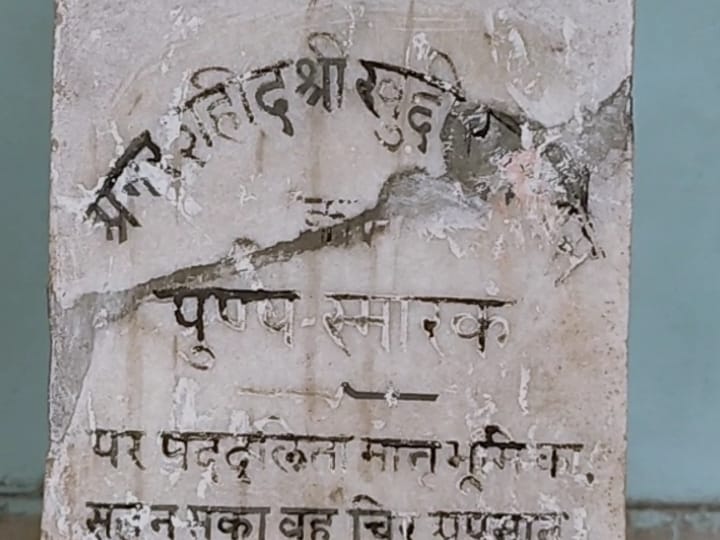 अमर शहीद श्री खुदी
पुण्य-स्मारक
पर पददलिता मातृभूमि का
सका वह चिर अपमान